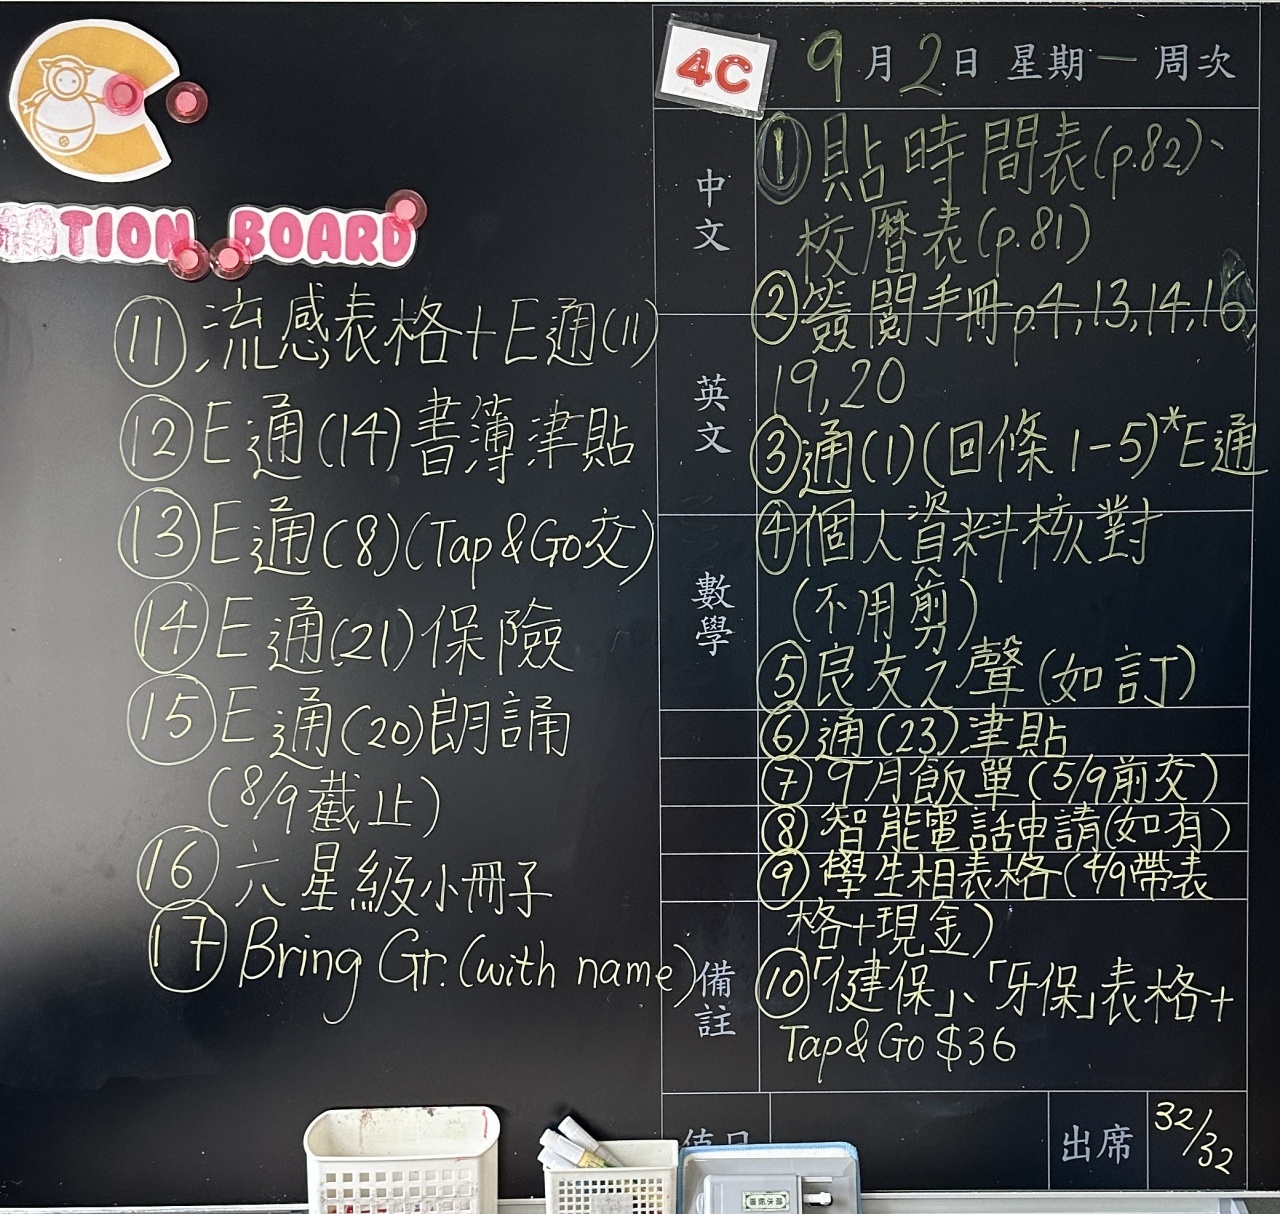 4C
9月2日 星期一 周次
中文
①貼時間表(p.82)、
校曆表(p.81)
②簽閱手冊p.4,13,14,16,
19,20
英文
③通(1)(回條1-5)*E通
④個人資料核對
(不用剪)
數學
⑤良友之聲(如訂)
⑥通(23)津貼
⑦9月飯單(5/9前交)
⑧智能電話申請(如有)
⑨學生相表格(4/9帶表
格+現金)
備註
⑩「健保」、「牙保」表格+
Tap&Go $36
值日
出席
32/32
BOARD
⑪流感表格+E通(11)
⑫E通(14)書簿津貼
⑬E通(8)(Tap&Go交)
⑭E通(21)保險
⑮E通(20)朗誦
(8/9截止)
⑯六星級小冊子
⑰Bring Gr.(with name)